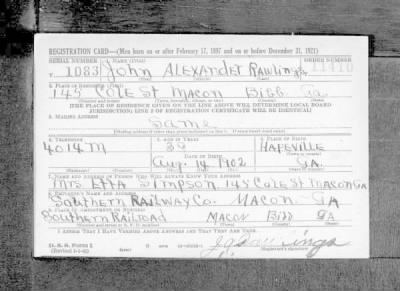 REGISTRATION CARD—(Men born on or after February 17, 1897 and on or before December 31, 1921)
SERIAL NUMBER 1. NAME (Print) ORDER NUMBER
T 1083 John ALEXANDER Rawlings 11410
2. PLACE OF RESIDENCE (Print)
145 COLE St MACON BIBB Ga.
[THE PLACE OF RESIDENCE GIVEN ON THE LINE ABOVE WILL DETERMINE LOCAL BOARD
JURISDICTION; LINE 2 OF REGISTRATION CERTIFICATE WILL BE IDENTICAL]
3. MAILING ADDRESS
Same
[Mailing address if other than place indicated on line 2. If same insert word same]
4. TELEPHONE 5. AGE IN YEARS 6. PLACE OF BIRTH
4014M HAPEVILLE
DATE OF BIRTH
Aug. 14 1902 GA.
7. NAME AND ADDRESS OF PERSON WHO WILL ALWAYS KNOW YOUR ADDRESS
Mrs Etta Simpson 145 Cole St Macon GA
8. EMPLOYER'S NAME AND ADDRESS
Southern Railway Co. MACON. GA
9. PLACE OF EMPLOYMENT OR BUSINESS
Southern Railroad MACON BIBB GA
I AFFIRM THAT I HAVE VERIFIED ABOVE ANSWERS AND THAT THEY ARE TRUE.
D. S. S. FORM 1
(Registrant's signature)